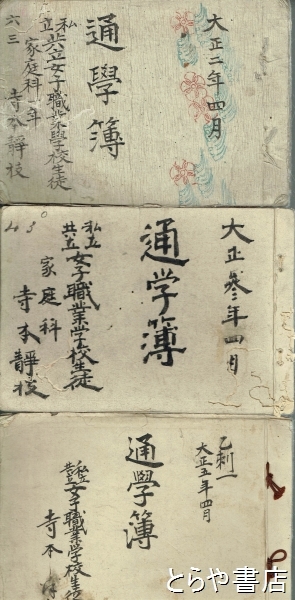 大正二年四月
通學簿
私立共立女子職業學校生徒
家庭科一年
寺本靜枝
六三
大正参年四月
通学簿
私立共立女子職業学校生徒
家庭科
寺本靜枝
430
乙刺一
大正五年四月
通學簿
私立共立女子職業学校生徒
寺本
とらや書店